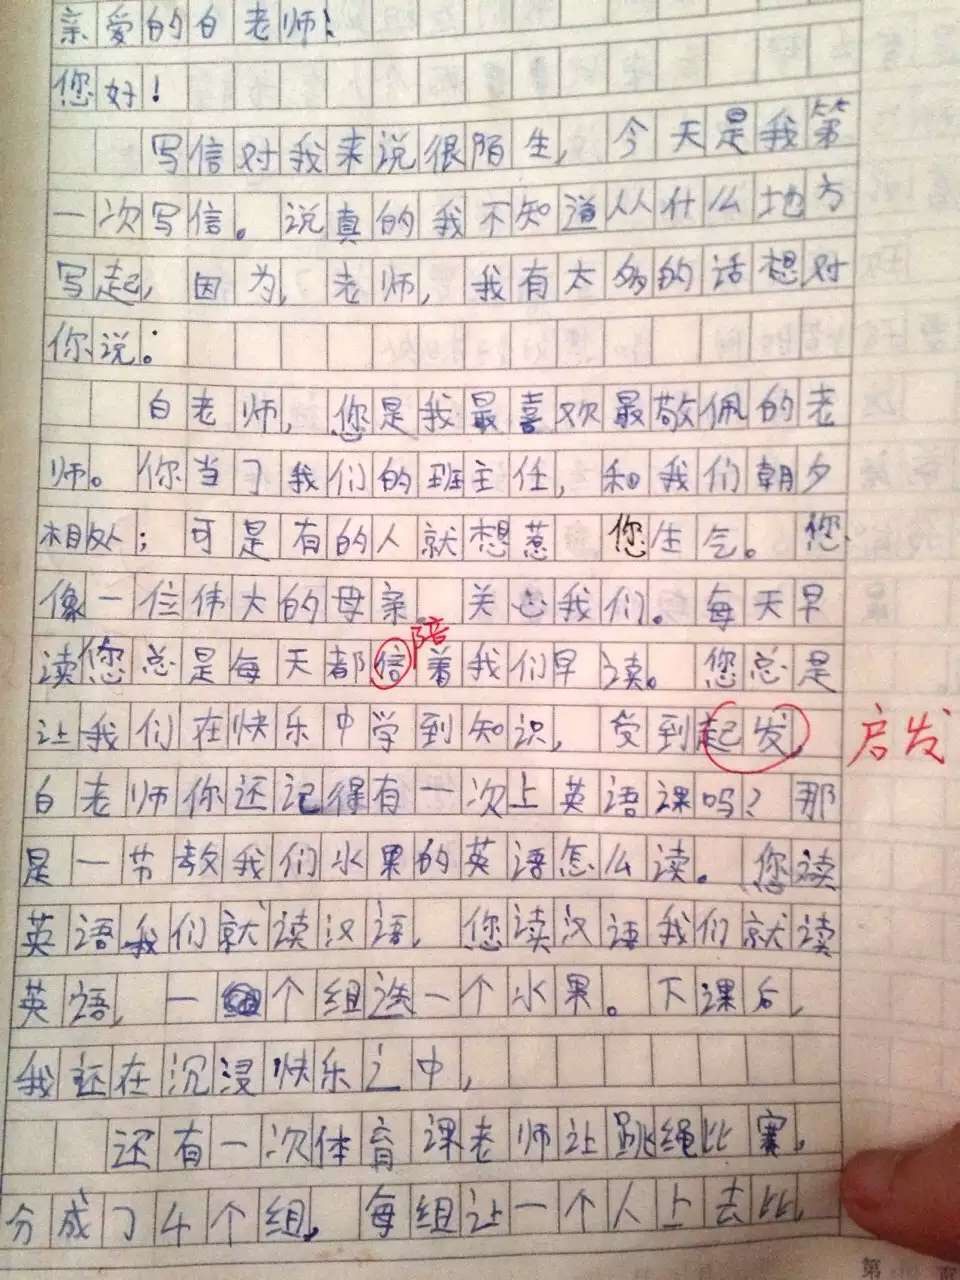 亲爱的白老师！
您好！
写信对我来说很陌生，今天是我第
一次写信。说真的我不知道从什么地方
写起，因为，老师，我有太多的话想对
你说：
白老师，您是我最喜欢最敬佩的老
师。你当了我们的班主任，和我们朝夕
相处；可是有的人就想惹您生气。您
像一位伟大的母亲，关心我们。每天早
读您总是每天都信着我们早读。您总是
陪
让我们在快乐中学到知识，受到起发，
启发
白老师你还记得有一次上英语课吗？那
是一节教我们水果的英语怎么读。您读
英语我们就读汉语，您读汉语我们就读
英语，一个组选一个水果。下课后，
我还在沉浸快乐之中，
还有一次体育课老师让跳绳比赛，
分成了4个组，每组让一个人上去比，
第